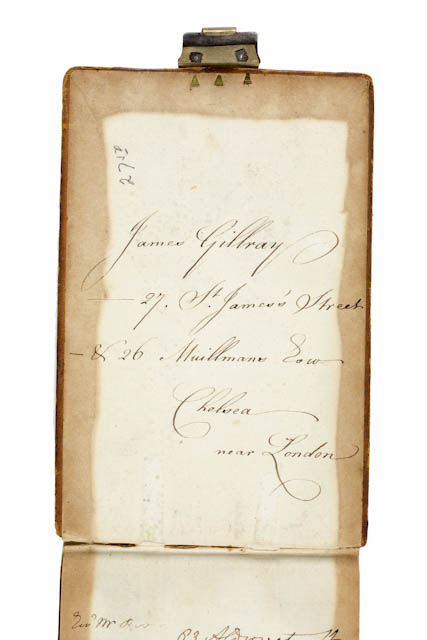 James Gillray
— 27. St James's Street
— & 26 Muillmans Row
Chelsea
near London
Mr